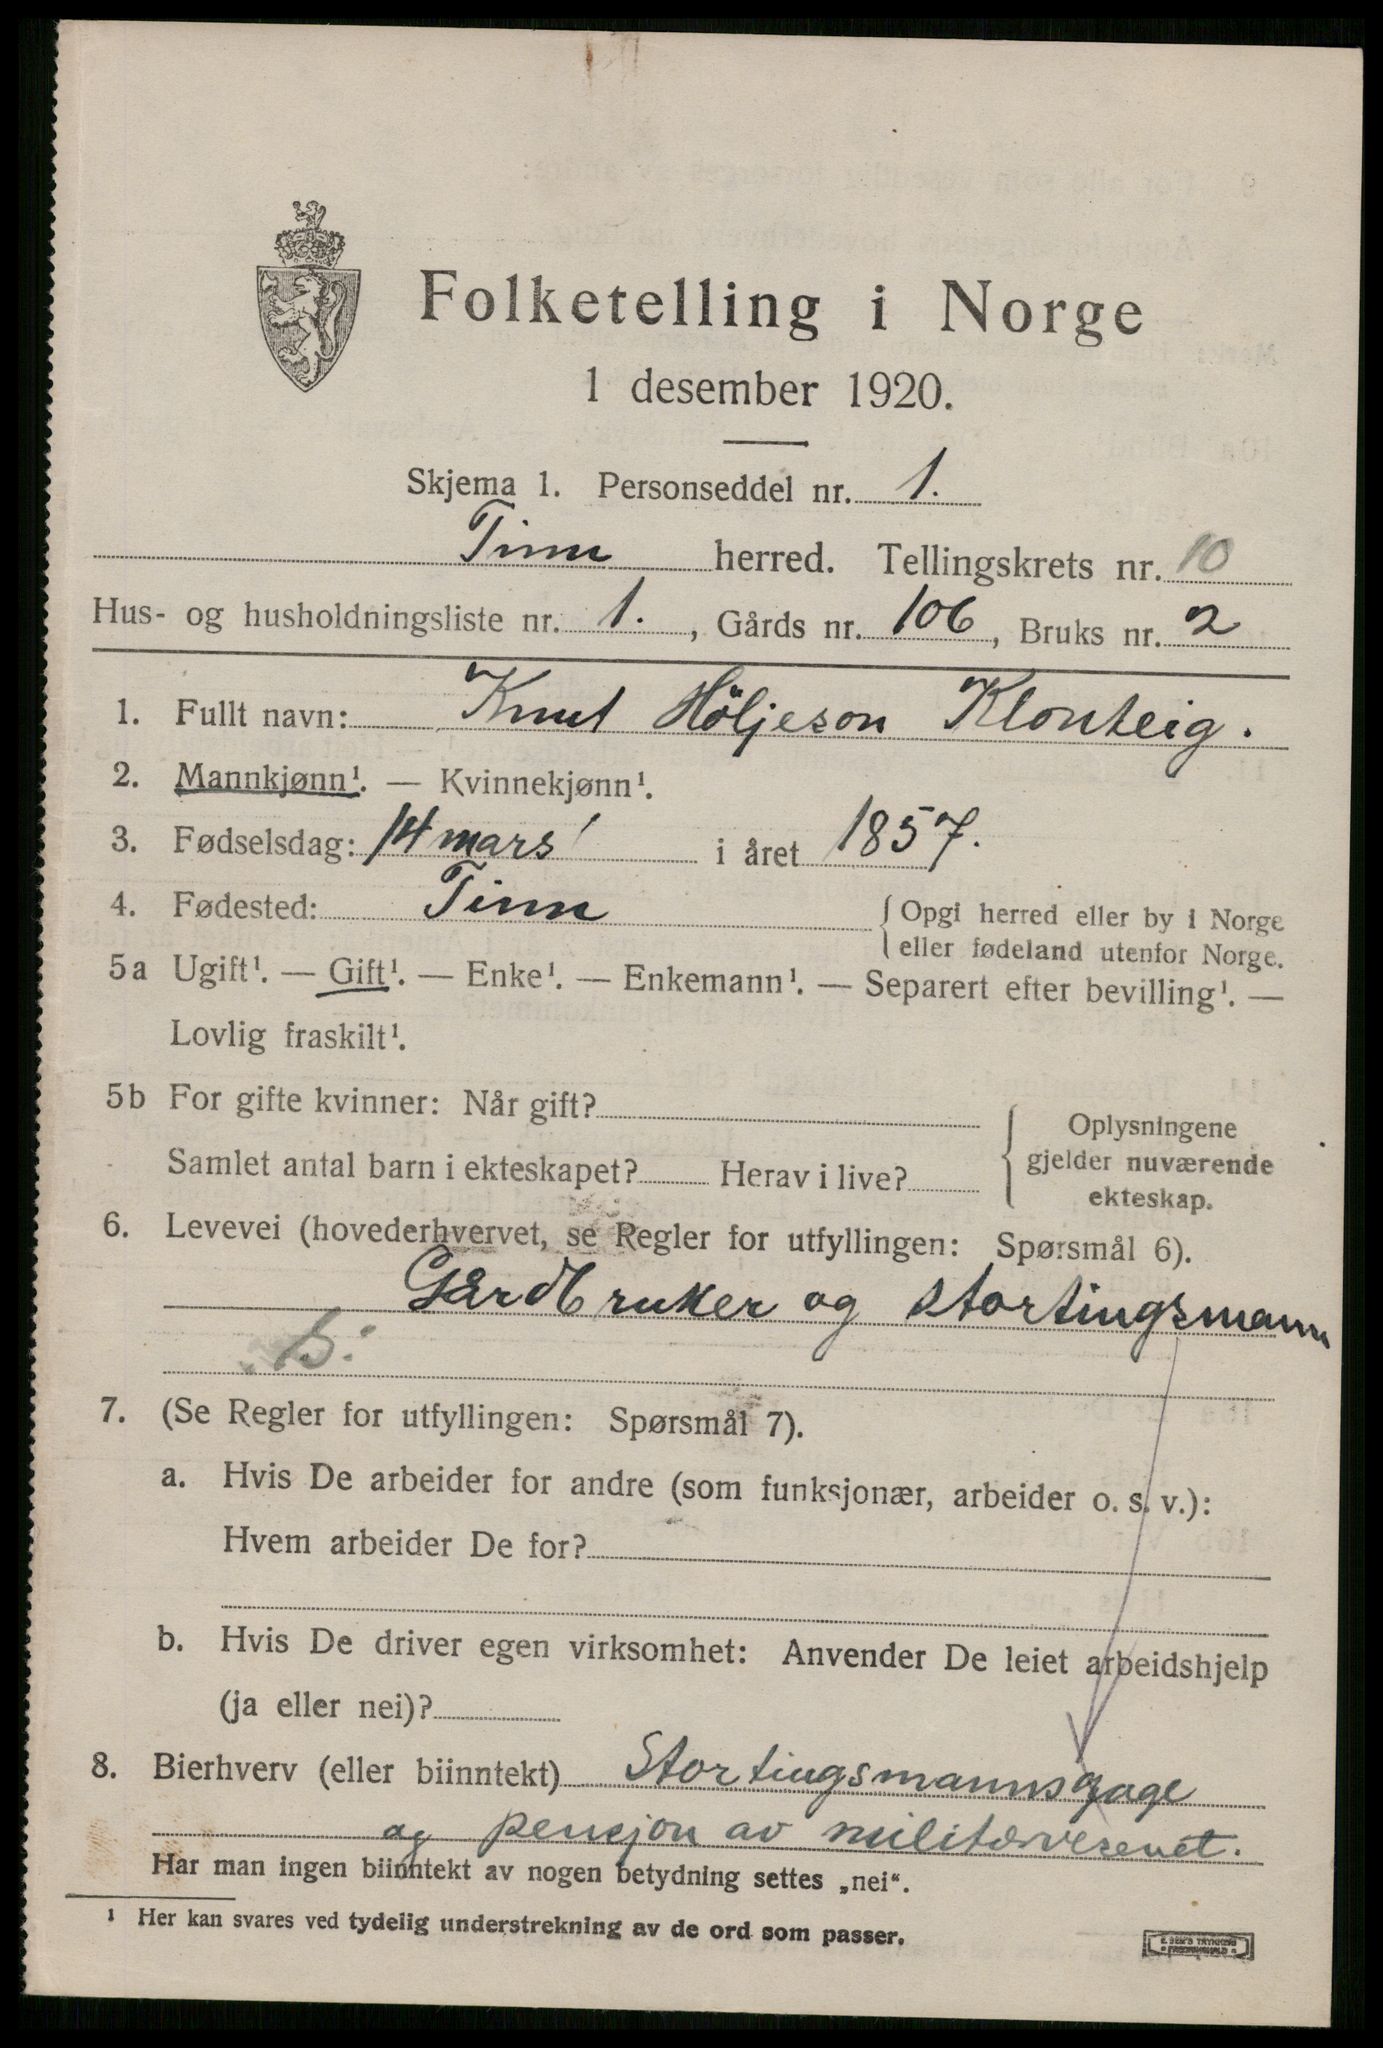 Folketelling i Norge
1 desember 1920.
Skjema 1. Personseddel nr. 1.
Tinn herred. Tellingskrets nr. 10
Hus- og husholdningsliste nr. 1., Gårds nr. 106, Bruks nr. 2
1. Fullt navn: Knut Höljeson Klonteig.
2. Mannkjønn¹. — Kvinnekjønn¹.
3. Fødselsdag: 14 mars i året 1857.
4. Fødested: Tinn { Opgi herred eller by i Norge
eller fødeland utenfor Norge.
5a Ugift¹. — Gift¹. — Enke¹. — Enkemann¹. — Separert efter bevilling¹. —
Lovlig fraskilt¹.
5b For gifte kvinner: Når gift?
Samlet antal barn i ekteskapet? Herav i live?
Oplysningene
gjelder nuværende
ekteskap.
6. Levevei (hovederhvervet, se Regler for utfyllingen: Spørsmål 6).
Gårdbruker og stortingsmann
7. (Se Regler for utfyllingen: Spørsmål 7).
a. Hvis De arbeider for andre (som funksjonær, arbeider o. s. v.):
Hvem arbeider De for?
b. Hvis De driver egen virksomhet: Anvender De leiet arbeidshjelp
(ja eller nei)?
8. Bierhverv (eller biinntekt) Stortingsmannsgage
og pensjon av militærvesenet.
Har man ingen biinntekt av nogen betydning settes „nei“.
¹ Her kan svares ved tydelig understrekning av de ord som passer.